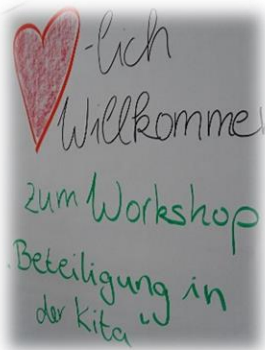 -lich
Willkomme
zum Workshop
„Beteiligung in
der Kita“